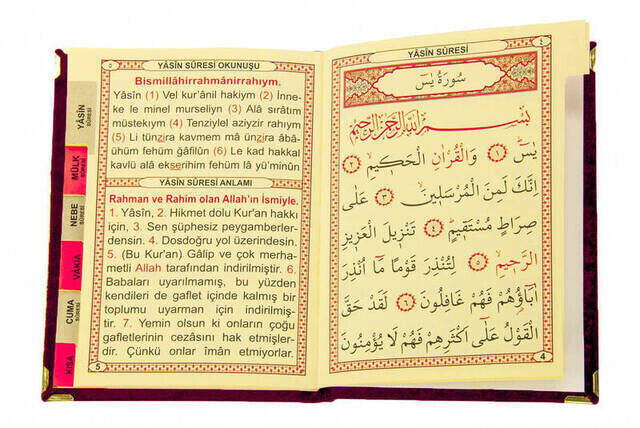 YÂSİN SÛRESİ
٤
سُورَةُ يٰسٓ
بِسْمِ اللّٰهِ الرَّحْمٰنِ الرَّحِيمِ
يٰسٓ ﴿١﴾ وَالْقُرْاٰنِ الْحَكِيمِ ﴿٢﴾
اِنَّكَ لَمِنَ الْمُرْسَلِينَ ﴿٣﴾ عَلٰى
صِرَاطٍ مُسْتَقِيمٍ ﴿٤﴾ تَنْزِيلَ الْعَزِيزِ
الرَّحِيمِ ﴿٥﴾ لِتُنْذِرَ قَوْمًا مَٓا اُنْذِرَ
اٰبَٓاؤُ۬هُمْ فَهُمْ غَافِلُونَ ﴿٦﴾ لَقَدْ حَقَّ
الْقَوْلُ عَلٰٓى اَكْثَرِهِمْ فَهُمْ لَا يُؤْمِنُونَ
4
٥
YÂSİN SÛRESİ OKUNUŞU
Bismillâhirrahmânirrahıym.
Yâsîn (1) Vel kur'ânil hakiym (2) İnne-
ke le minel murseliyn (3) Alâ sırâtım
müstekıym (4) Tenziylel aziyzir rahıym
(5) Li tünzira kavmem mâ ünzira âbâ-
ühüm fehüm ğâfilûn (6) Le kad hakkal
kavlü alâ ekserihim fehüm lâ yü'minûn
YÂSİN SÛRESİ ANLAMI
Rahman ve Rahim olan Allah'ın İsmiyle.
1. Yâsîn, 2. Hikmet dolu Kur'an hakkı
için, 3. Sen şüphesiz peygamberler-
densin. 4. Dosdoğru yol üzerindesin.
5. (Bu Kur'an) Gâlip ve çok merha-
metli Allah tarafından indirilmiştir. 6.
Babaları uyarılmamış, bu yüzden
kendileri de gaflet içinde kalmış bir
toplumu uyarman için indirilmiş-
tir. 7. Yemin olsun ki onların çoğu
gafletlerinin cezasını hak etmişler-
dir. Çünkü onlar îmân etmiyorlar.
5
YÂSİN
SÛRESİ
MÜLK
SÛRESİ
NEBE
SÛRESİ
VÂKIA
CUMA
SÛRESİ
KISA